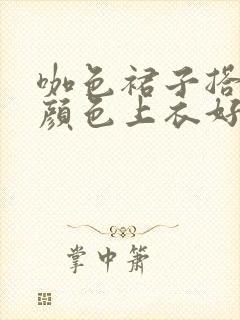 咖色裙子搭
颜色上衣好
掌中箫